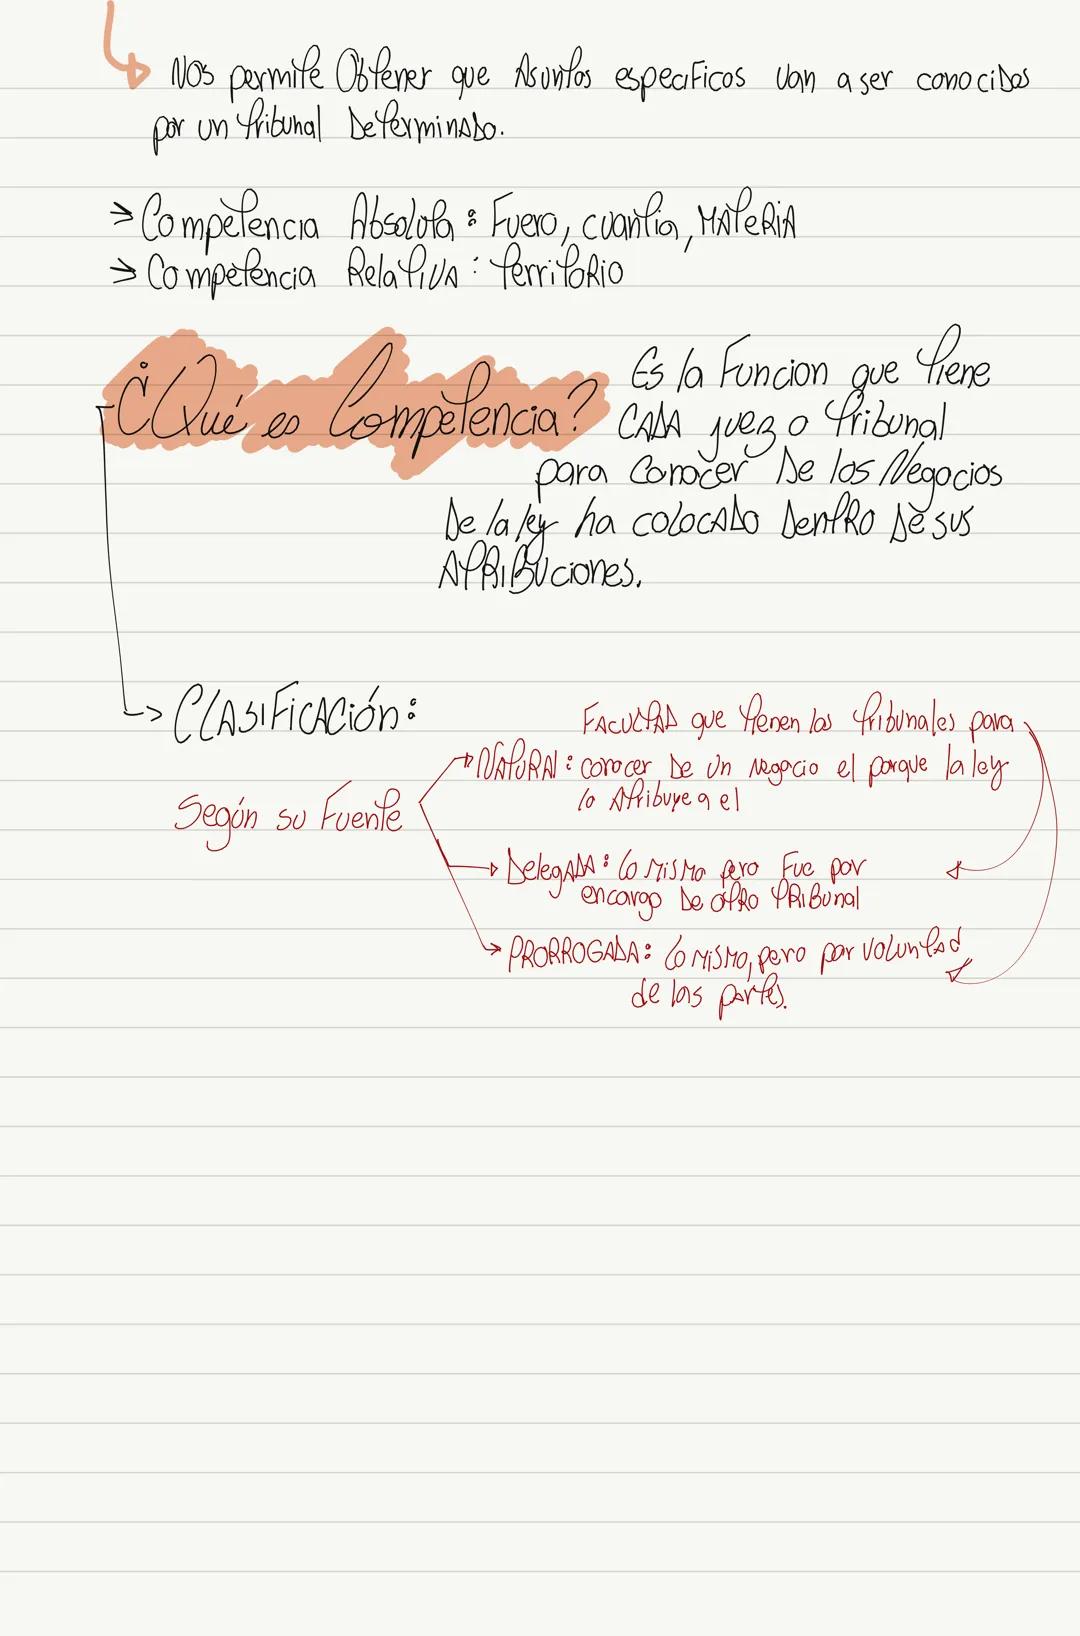 Nos permite Obtener que Asuntos especificos van a ser conocidos
por un tribunal Determinado.
> Competencia Absoluta: Fuero, cuantia, MATERIA
> Competencia Relativa: territorio
¿Qué es Competencia?
Es la Funcion que tiene
CADA juez o tribunal
para Conocer De los Negocios
De la ley ha colocado Dentro De sus
Atribuciones.
CLASIFICACión:
Según su Fuente
FACULTAD que tienen los tribunales para
NATURAL: conocer De Un Negocio el porque la ley
lo Atribuye a el
DelegADA: Lo mismo pero Fue por
encargo De otro tribunal
PRORROGADA: Lo mismo, pero por voluntad
de las partes.